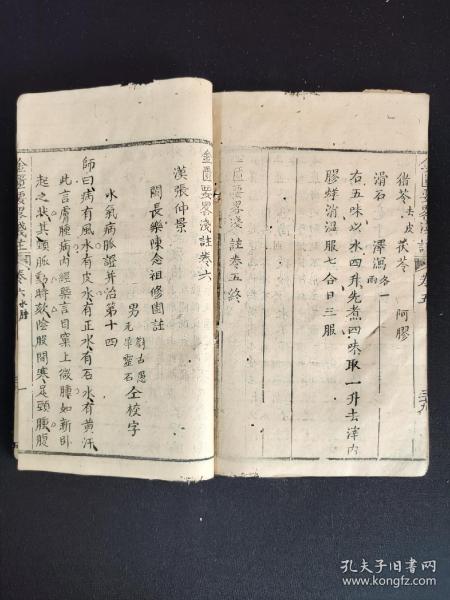 猪苓去皮 茯苓 阿膠
滑石 澤瀉各一兩
右五味以水四升先煮四味取二升去滓內
膠烊消溫服七合日三服
金匱要畧淺註卷五終
金匱要畧淺註卷六
漢張仲景
閩長樂陳念祖修園註
男 古愚 仝校字
元犀靈石
水氣病脈證并治第十四
師曰病有風水有皮水有正水有石水有黃汗
此言膚腫病內經槩言目窠上微腫如新臥
起之狀其頸脈動時欬陰股間寒足頭腫腹
孔夫子旧书网
www.kongfz.com